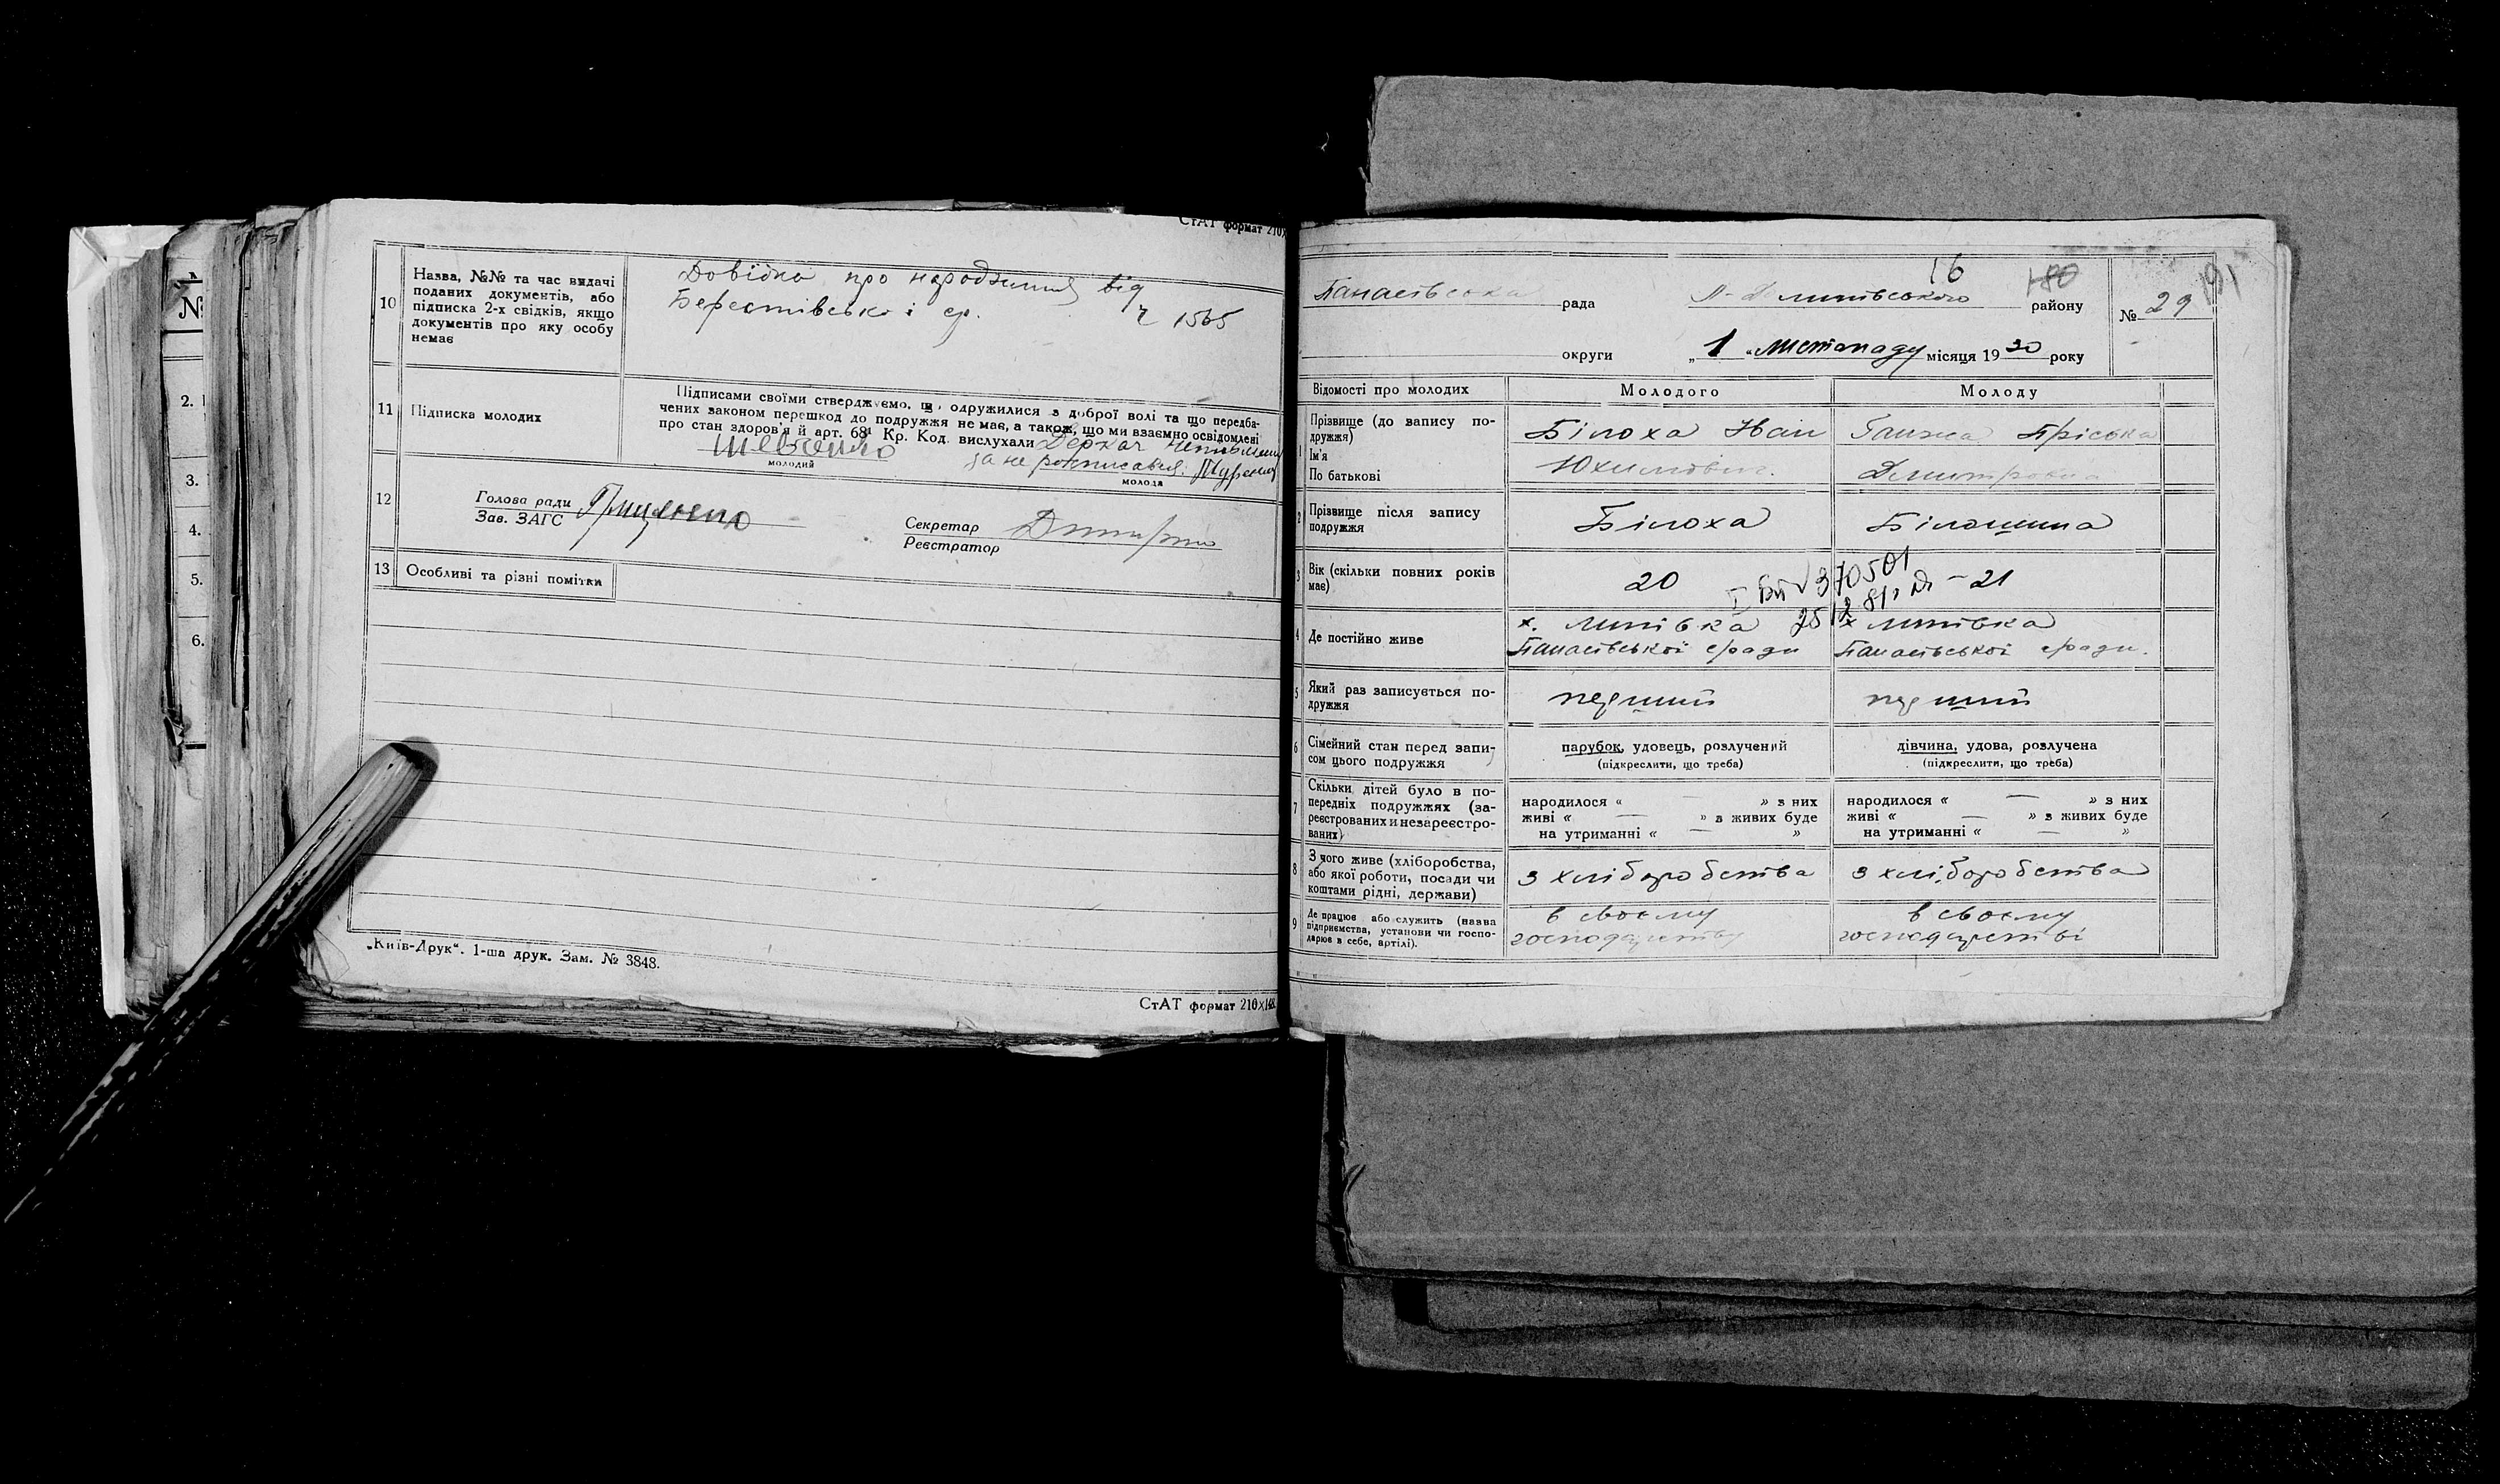 СтАТ формат 210х
№
2.
3.
4.
5.
6.
10 Назва, №№ та час видачі
поданих документів, або
підписка 2-х свідків, якщо
документів про яку особу
немає
Довідка про народження від
Берестівської ср. 1565
11 Підписка молодих
Підписами своїми стверджуємо, що одружилися з доброї волі та що передба-
чених законом перешкод до подружжя не має, а також, що ми взаємно освідомлені
про стан здоров'я й арт. 68¹ Кр. Код. вислухали Деркач неписьмен
Шевченко
за не росписався
молодий
молода
12 Голова ради
Зав. ЗАГС
Секретар
Реєстратор
13 Особливі та різні помітки
„Київ-Друк“. 1-ша друк. Зам. № 3848.
СтАТ формат 210х148
16 180 191
Панасівська рада Л-Долинського району № 29
округи „ 1 “ листопаду місяця 19 30 року
Відомості про молодих Молодого Молоду
1 Прізвище (до запису по-
дружжя)
Ім'я
По батькові
Білоха Іван
Юхимович.
Ганжа Пріська
Дмитровна
2 Прізвище після запису
подружжя
Білоха
Білошина
3 Вік (скільки повних років
має)
20
21
370501
4 Де постійно живе
х. Липівка
Панасівської с/ради
х Липівка
Панасівської с/ради.
5 Який раз записується по-
дружжя
перший
перший
6 Сімейний стан перед запи-
сом цього подружжя
парубок, удовець, розлучений
(підкреслити, що треба)
дівчина, удова, розлучена
(підкреслити, що треба)
7 Скільки дітей було в по-
передніх подружжях (за-
реєстрованих и незареєстро-
ваних)
народилося « — » з них
живі « — » з живих буде
на утриманні « — »
народилося « — » з них
живі « — » з живих буде
на утриманні « — »
8 З чого живе (хліборобства,
або якої роботи, посади чи
коштами рідні, держави)
з хліборобства
з хліборобства
9 Де працює або служить (назва
підприємства, установи чи госпо-
дарює в себе, артілі).
в своєму
господарству
в своєму
господарстві